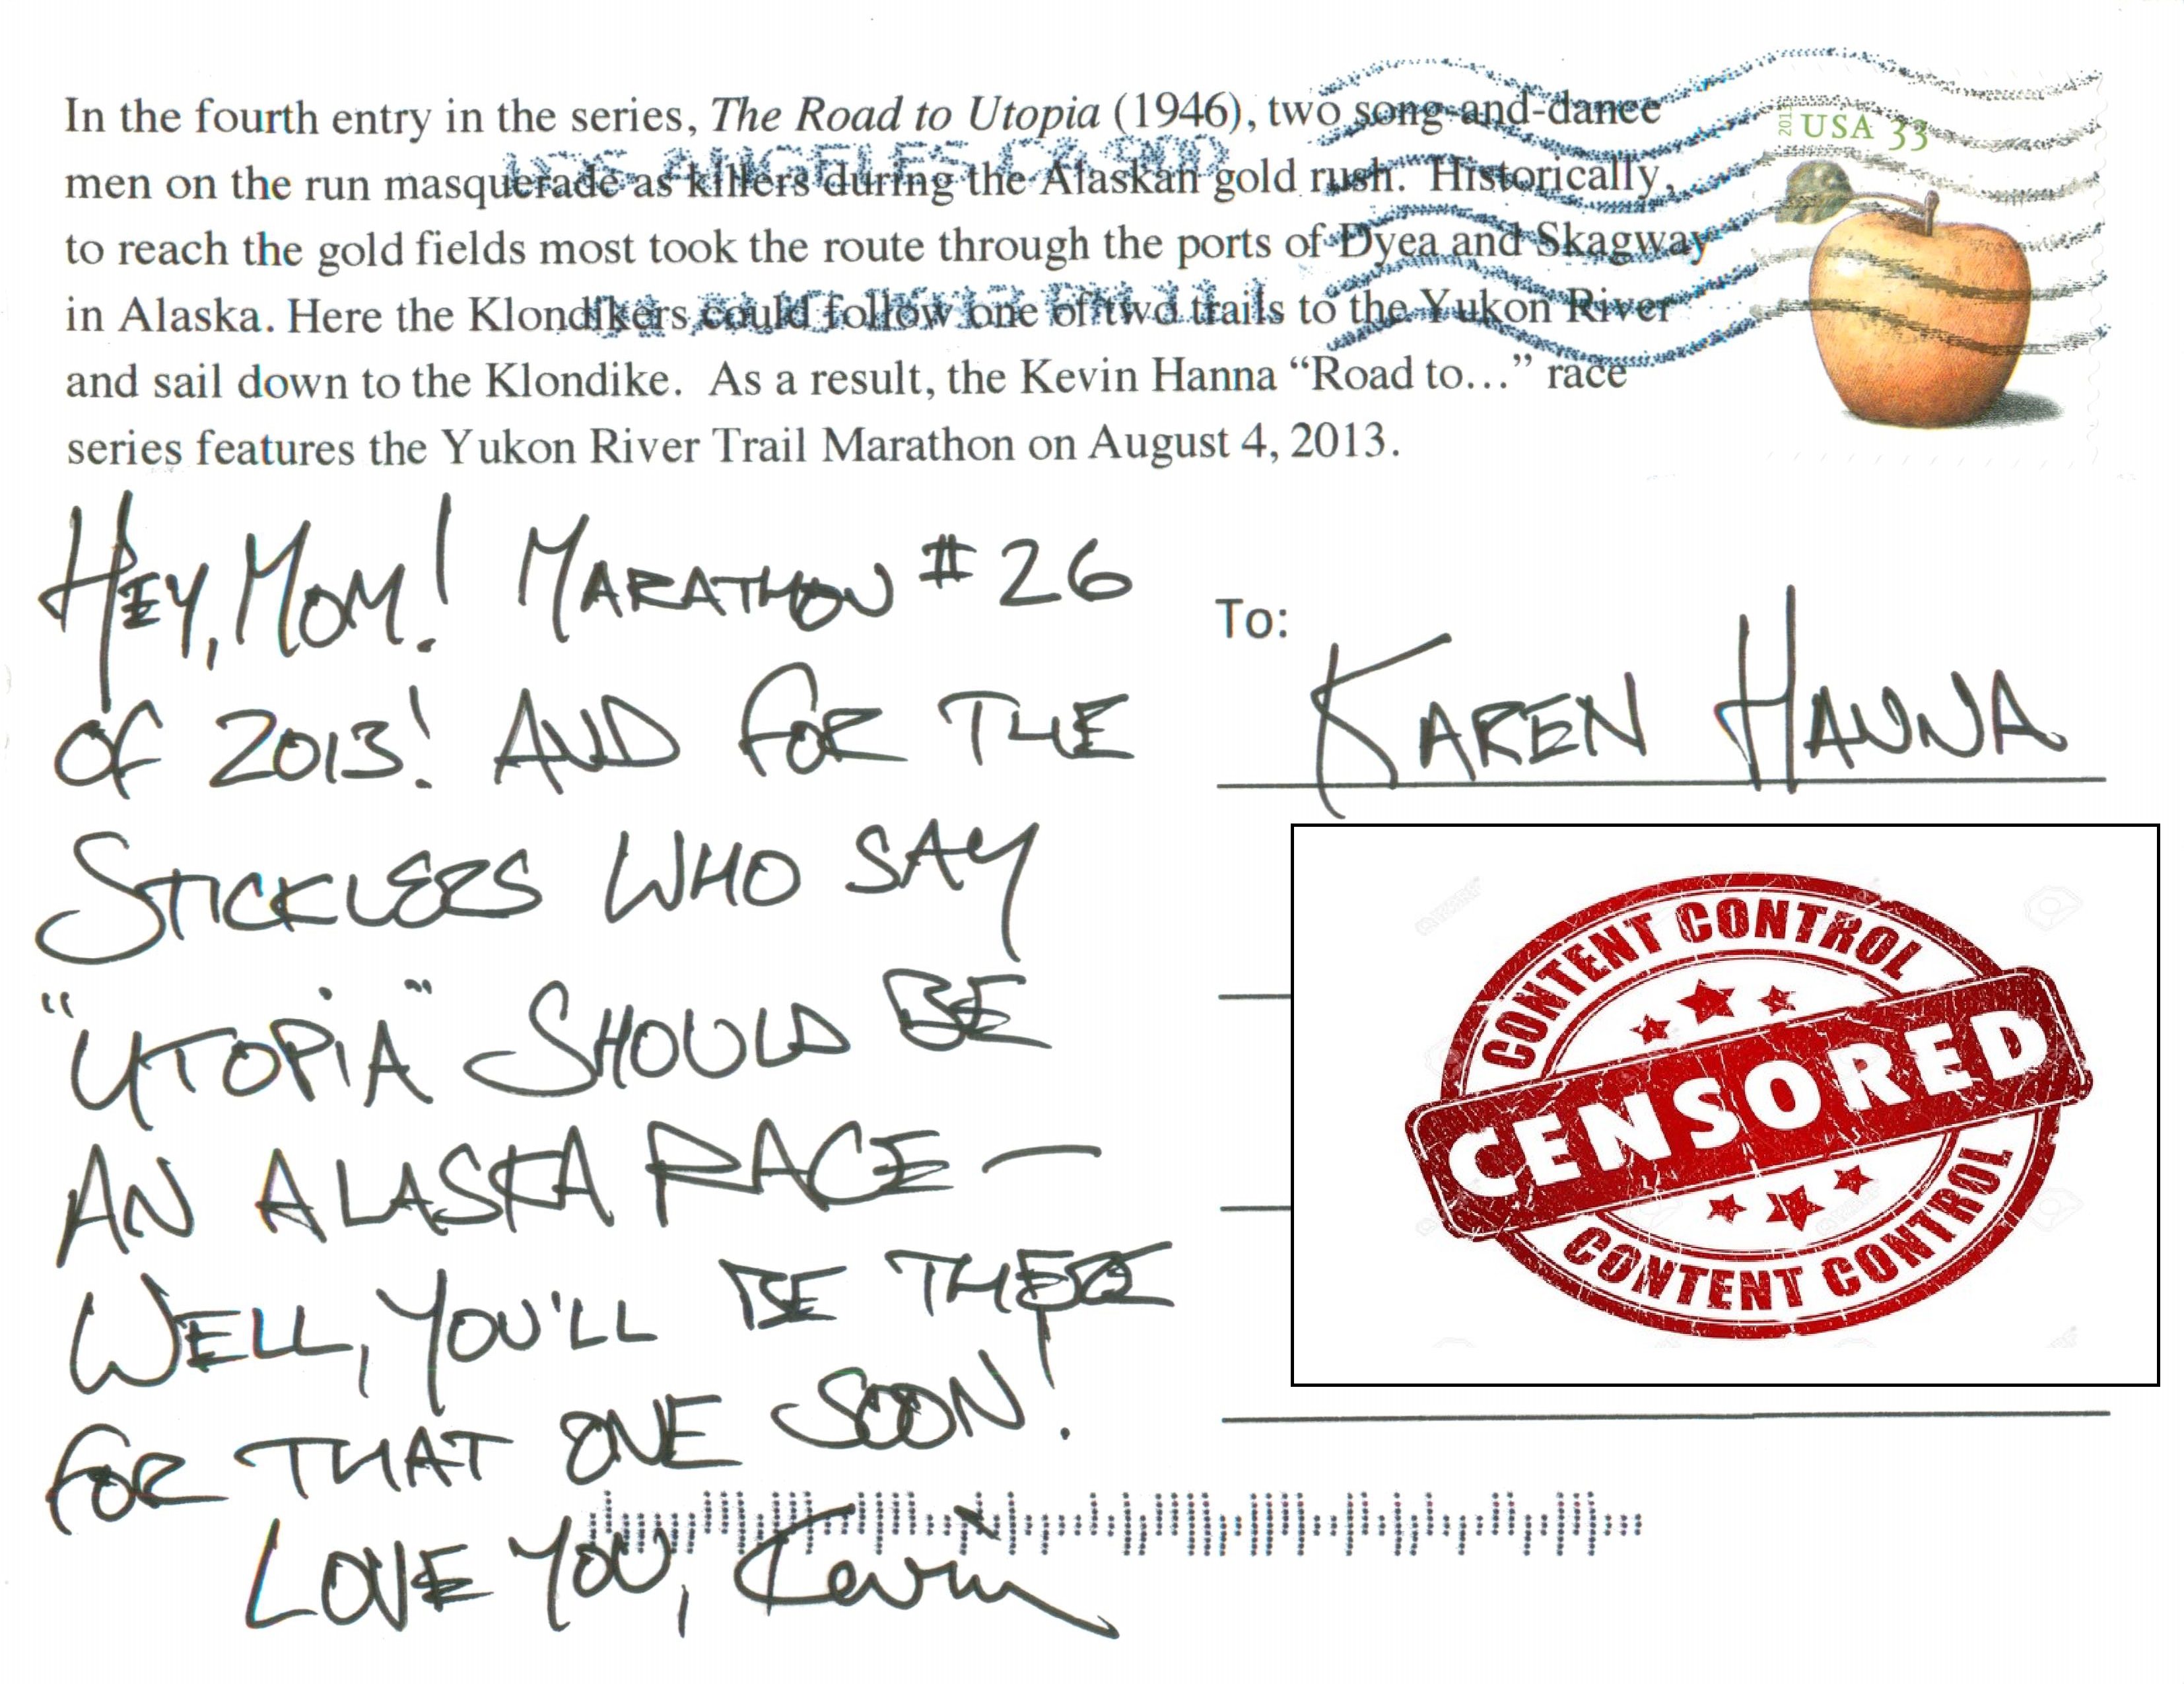 In the fourth entry in the series, The Road to Utopia (1946), two song-and-dance
men on the run masquerade as killers during the Alaskan gold rush. Historically,
to reach the gold fields most took the route through the ports of Dyea and Skagway
in Alaska. Here the Klondikers could follow one of two trails to the Yukon River
and sail down to the Klondike. As a result, the Kevin Hanna “Road to…” race
series features the Yukon River Trail Marathon on August 4, 2013.
USA 33
LOS ANGELES CA 900
HEY, MOM! MARATHON #26
OF 2013! AND FOR THE
STICKLERS WHO SAY
"UTOPIA" SHOULD BE
AN ALASKA RACE—
WELL, YOU'LL BE THERE
FOR THAT ONE SOON!
LOVE YOU, Kevin
To:
KAREN HANNA
CONTENT CONTROL
CENSORED
CONTENT CONTROL